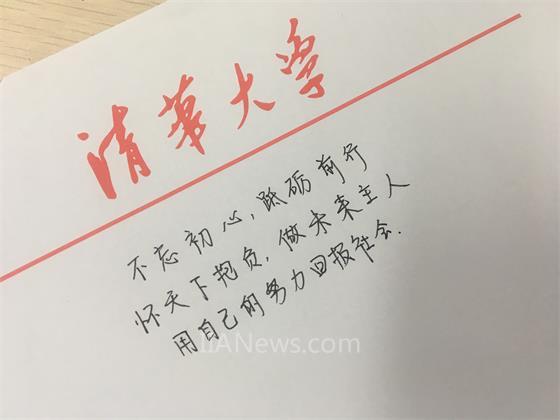 清华大学
不忘初心,砥砺前行
怀天下抱负,做未来主人
用自己的努力回报社会.
IIANews.com